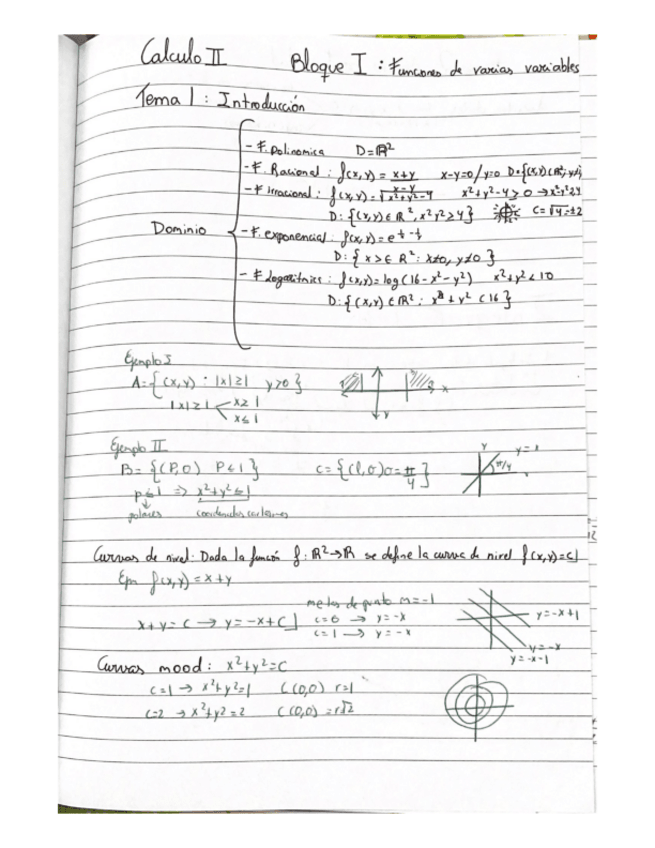 Calculo II Bloque I : Funciones de varias variables
Tema 1 : Introducción
Dominio
- F. Polinomica D=ℝ²
- F. Racional : f(x,y) = x+y / x-y x-y=0 / y=0
- F. Irracional : f(x,y) = √x²+y²-4 x²+y²-4≥0
D: {(x,y) ∈ ℝ², x²y²≥4} C=√4=±2
- F. exponencial : f(x,y) = e
D: { x> ∈ ℝ² : x≠0, y≠0 }
- F. Logaritmica : f(x,y) = log(16-x²-y²) x²+y²<10
D: {(x,y) ∈ ℝ² : x²+y² <16}
Ejemplo I
A={(x,y) : |x|≥1 y>0} x
|x|≥1 x≥1
x≤1 y
Ejemplo II
B = {(P,O) P≤1} C = {(P,O) O=π/4} y π/4
p≤1 => x²+y²≤1
polares
Curvas de nivel: Dada la función f: ℝ²→ℝ se define la curva de nivel f(x,y)=c
f(x,y) = x+y
m=-1
x+y=c → y=-x+c c=0 → y=-x y=-x+1
c=1 → y=-x y=-x
y=-x-1
Curvas mood : x²+y²=C
c=1 → x²+y²=1 C(0,0) r=1
c=2 → x²+y²=2 C(0,0) =r√2